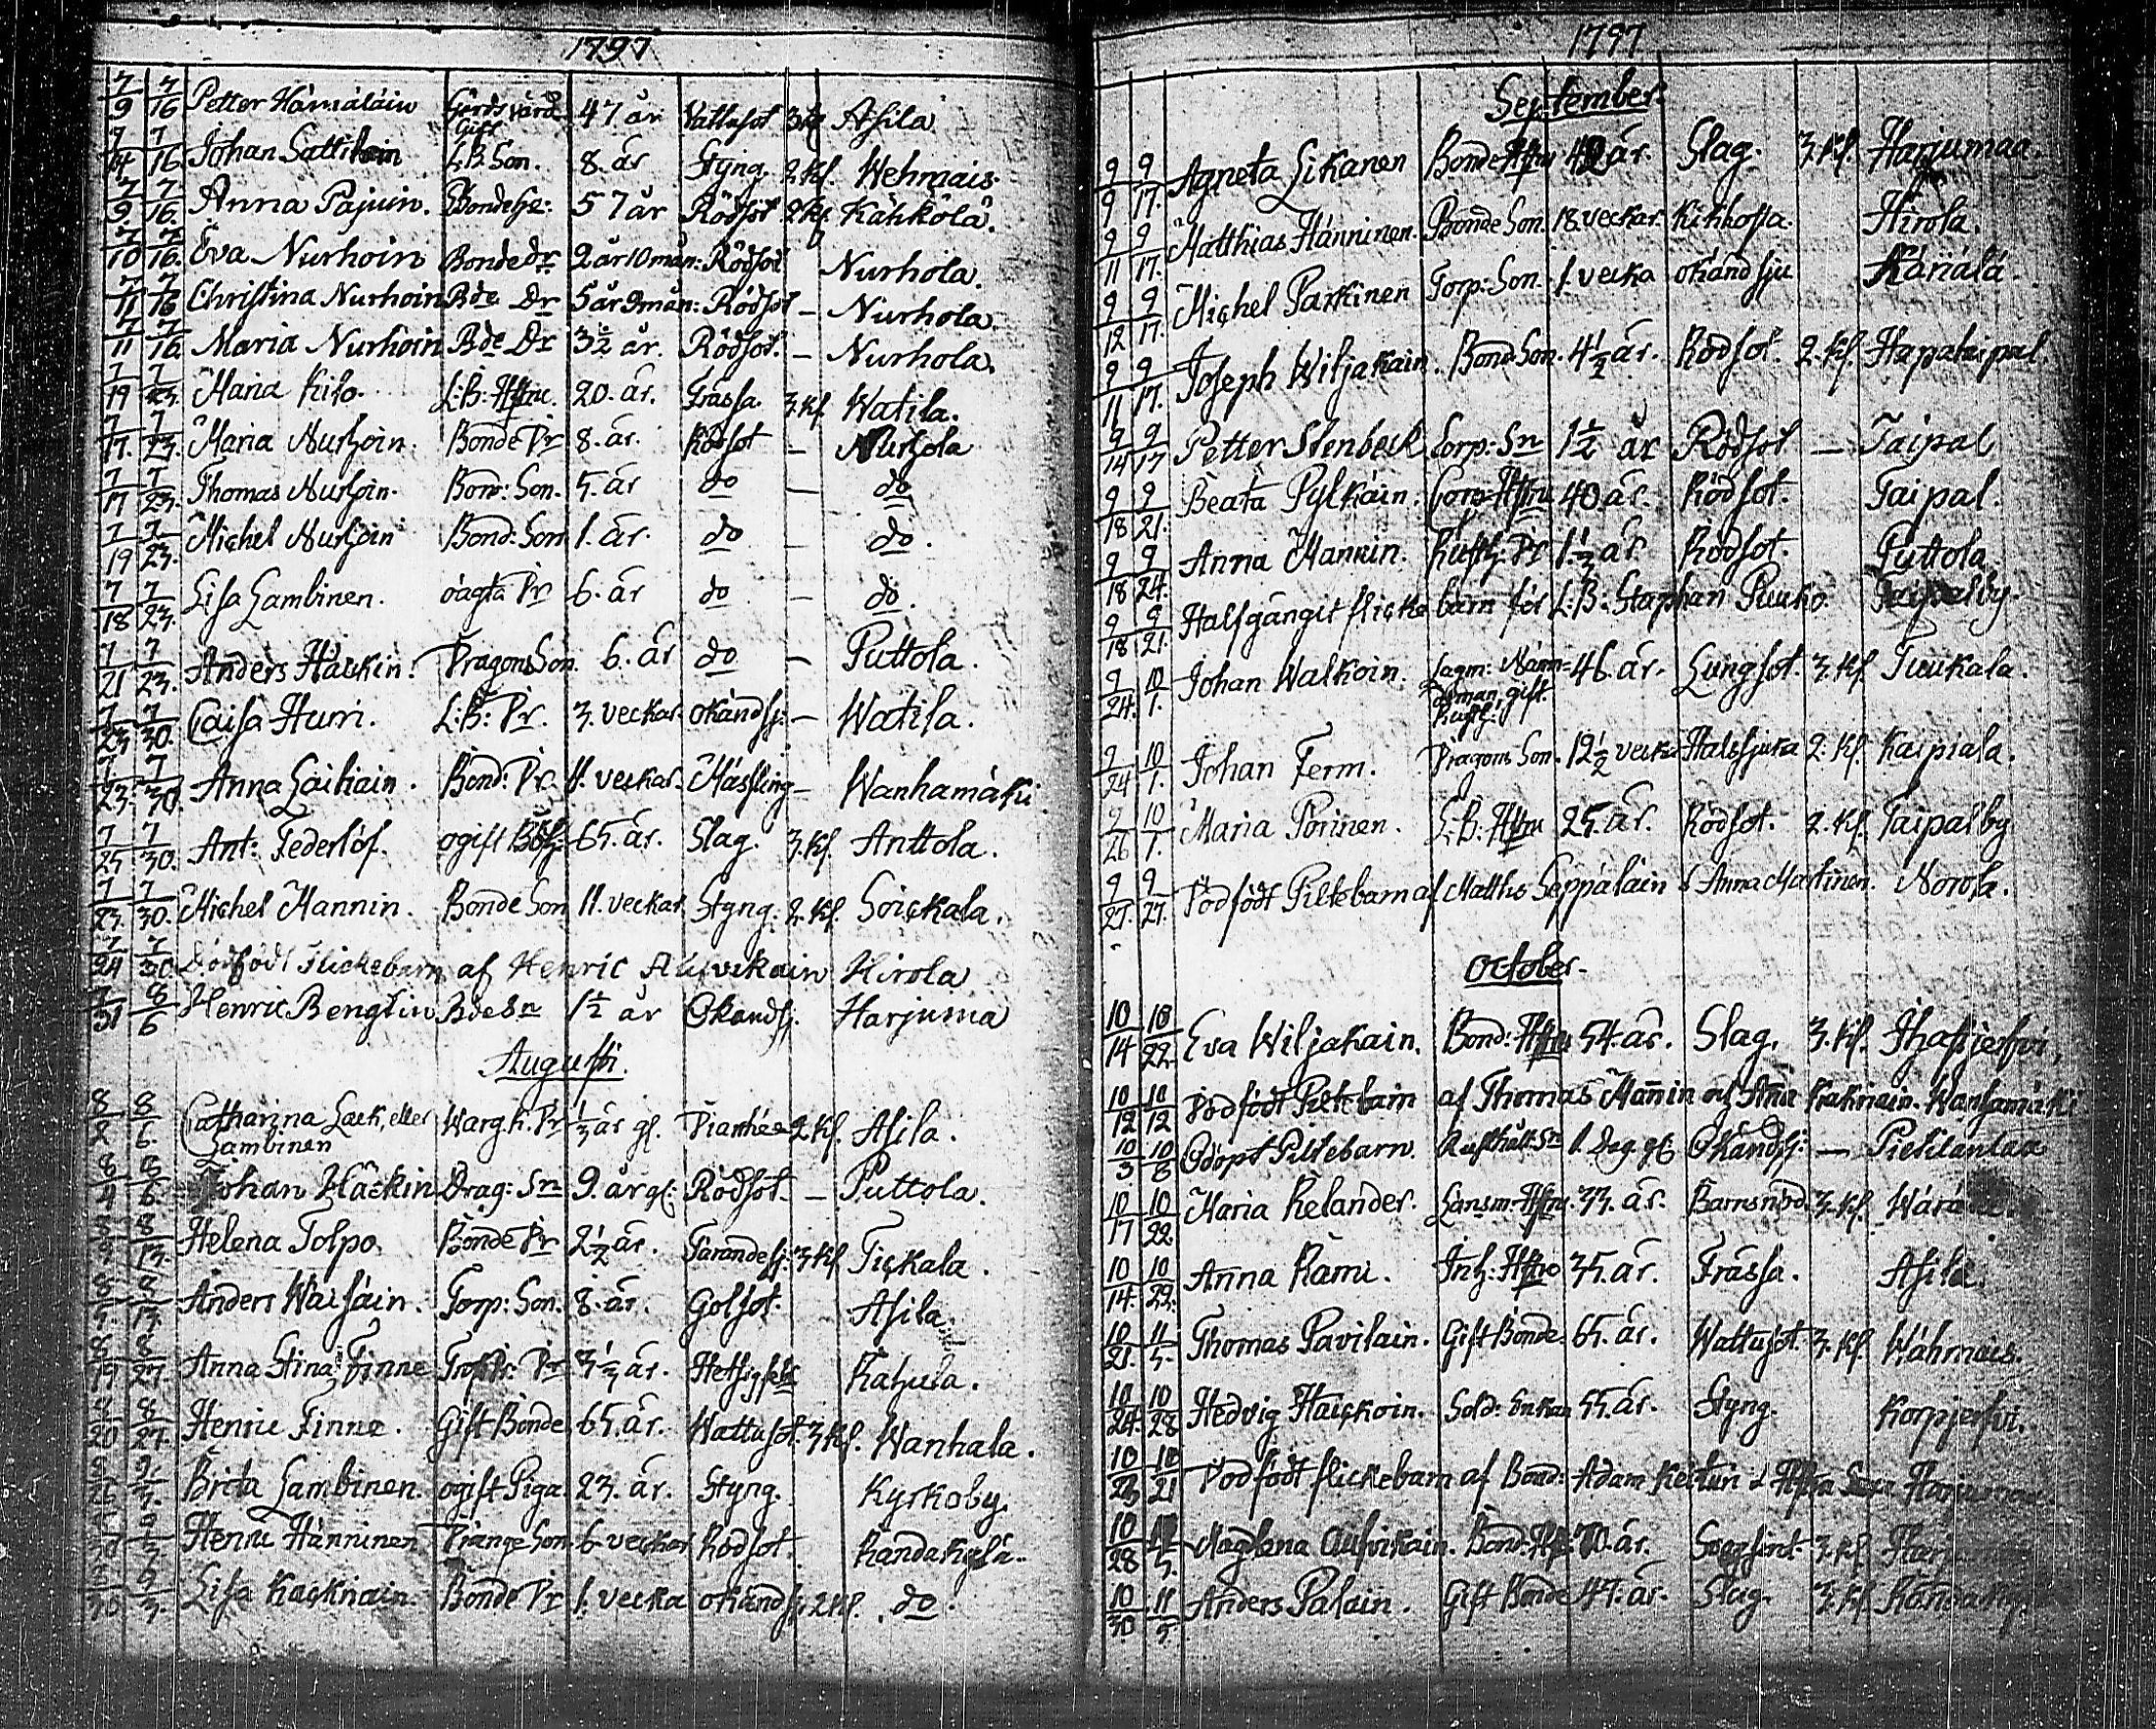 1797
7/9 7/16 Petter Hämäläin Gårds värd Gift 47 år Vattusot 3 kl Asila
7/14 7/16 Johan L:B: Son. 8. år Styng. 2 kl. Wehmais.
7/9 7/16. Anna Pajuin. Bonde 57 år Rödsot 2 kl. Kähkölä.
7/10 7/16. Eva Nurhoin Bonde dr 2 år 10 mån: Rödsot Nurhola.
7/11 7/16 Christina Nurhoin Bde Dr 5 år 9 mån: Rödsot – Nurhola.
7/11 7/16 Maria Nurhoin Bde Dr 3½ år. Rödsot. – Nurhola.
7/19 7/23. Maria Kilo. L:B: Hstru. 20. år. Frässa. 3. kl. Watila.
7/17. 7/23. Maria Nurhoin. Bonde Dr 8. år. Rödsot – Nurhola
7/17 7/23. Thomas Nurhoin. Bond: Son. 5. år do – do
7/19 7/23. Michel Nurhoin Bond: Son 1. år. do – do.
7/18 7/23. Lisa Lambinen. oägta Dr 6. år do – do.
7/21 7/23. Anders Häckin. Dragons Son. 6. år do – Puttola.
7/23 7/30. Caisa Hurri. L:B: Dr. 3. veckar. okändsj: – Watila.
7/23. 7/30. Anna Laihain. Bond: Dr. 11. veckar. Mässling – Wanhamäki
7/25 7/30. Ant: Federlöf. ogift 65. år. Slag. 3. kl. Anttola.
7/23. 7/30. Michel Mannin. Bonde Son 11. veckar. Styng. 2. kl. Soickala.
7/24 7/30 Dödfödt Flickebarn af Henric Hirola
7/31 8/6 Henric Bengtin Bde Sn 1½ år Okändsj. Harjuma
Augusti.
8/2 8/6. Catharina Lack, eller Lambinen Warg. k. Dr ⅓ år gl. Diarrhée 2 kl. Asila.
8/4 8/6. Johan Häckin Drag: Sn 9. år gl: Rödsot – Puttola.
8/13. Helena Tolpo. Bonde Dr 2½ år. Tärandesj: 3 kl Tickala.
Anders Waisäin. Torp: Son. 8. år. Golsot. Asila.
8/19 8/27 Anna Stina Finne Dr 3⅓ år. Kahula.
8/20 8/27. Henric Finne. Gift Bonde 65. år. Wattusot. 3 kl. Wanhala.
9/3. Brita Lambinen. ogift Piga. 23. år. Styng. Kyrkoby.
9/3. Henric Hänninen Dränge Son 6. veckar Rödsot. Randakylä.
8/30 9/3. Lisa Kacknain. Bonde Dr 1. vecka okändsj. 2 kl. do.
1797
September.
9/9 9/17. Agneta Likanen Bonde Hstru 42 år. Slag. 3. kl. Harjumaa.
9/11 9/17. Matthias Hänninen. Bonde Son. 18. veckar. Kikhosta. Hirola.
9/12 9/17. Michel Parkinen Torp: Son. 1. vecka okänd sju Käriälä.
9/11 9/17. Joseph Wiljakain. Bond: Son. 4½ år. Rödsot. 2. kl. Hapataipal.
9/14 9/17 Petter Stenbeck Corp: Sn 1½ år Rödsot – Taipal
9/18 9/21. Beata Pylkäin. Corp: Hstru 40 år. Rödsot. Taipal.
9/18 9/24. Anna Mannin. Rusth: Dr 1½ år Rödsot. Puttola.
9/18 9/21. Halfgångit flickebarn för L:B: Staphan Puuko. Taipalby.
9/24. 10/1. Johan Walkoin. Lagm: Nämndeman, gift. Rusth: 46. år. Lungsot. 3. kl. Tuukala.
9/24 10/1. Johan Ferm. Dragons Son. 12½ veckar Halssjuka 2. kl. Kaipiala.
9/26 10/1. Maria Porinen. L:B: Hstru 25. år. Rödsot. 2. kl. Taipalby
9/27. 9/27. Dödfödt Piltebarn af Matths Seppälain & Anna Martinen. Norola.
October.
10/14 10/22. Eva Wiljakain. Bond: Hstru 54. år. Slag. 3. kl. Ihasjerfvi.
10/12 10/12 Dödfödt Piltebarn af Thomas Mannin och Anna Wanhamäki
10/3 10/8 Odöpt Piltebarn. Rusthåll: Sn 1. Dag. gl: Okändsj: – Pietilänlax
10/17 10/22 Maria Relander. Länsm: Hstru. 33. år. Barnsnöd 3. kl.
10/14. 10/22. Anna Rämi. Inh: Hstro 35. år. Frässa. Asila.
10/21. 11/5. Thomas Pavilain. Gift Bonde. 65. år. Wattusot. 3. kl. Wähmais.
10/24. 10/28 Hedvig Haickoin. Sold: Enkan 55. år. Styng. Korpjerfvi.
10/23 10/21 Dödfödt flickebarn af Bond: Adam
10/28 Magdlena Bond: 70. år. 3. kl.
10/30 11/5 Anders Palain. Gift Bonde 47. år. Slag. 3. kl.